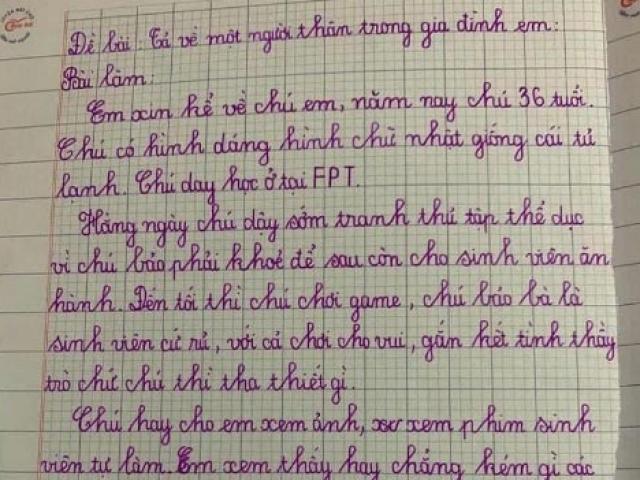 Đề bài: Tả về một người thân trong gia đình em:
Bài làm:
Em xin kể về chú em, năm nay chú 36 tuổi.
Chú có hình dáng hình chữ nhật giống cái tủ
lạnh. Chú dạy học ở tại FPT.
Hàng ngày chú dậy sớm tranh thủ tập thể dục
vì chú bảo phải khoẻ để sau còn cho sinh viên ăn
hành. Đến tối thì chú chơi game, chú bảo là là
sinh viên cứ rủ, với cả chơi cho vui, gắn kết tình thầy
trò chứ chú thì tha thiết gì.
Chú hay cho em xem ảnh, xem phim sinh
viên tự làm. Em xem thấy hay chẳng kém gì các